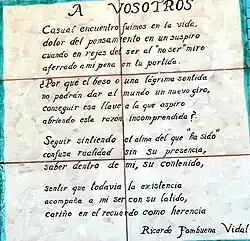 A VOSOTROS
Casual encuentro fuimos en la vida,
dolor del pensamiento en un suspiro
cuando en rejas del ser al "no ser" miro
aferrado a mi pena en tu partida.
¿Por qué el beso o una lágrima sentida
no podrán dar al mundo un nuevo giro,
conseguir esa llave a la que aspiro
abriendo esta razón incomprendida?
Seguir sintiendo el alma del que "ha sido"
confusa realidad sin su presencia,
saber dentro de mí, su contenido,
sentir que todavía la existencia
acompaña a mi ser con su latido,
cariño en el recuerdo como herencia
Ricardo Pambuena Vidal